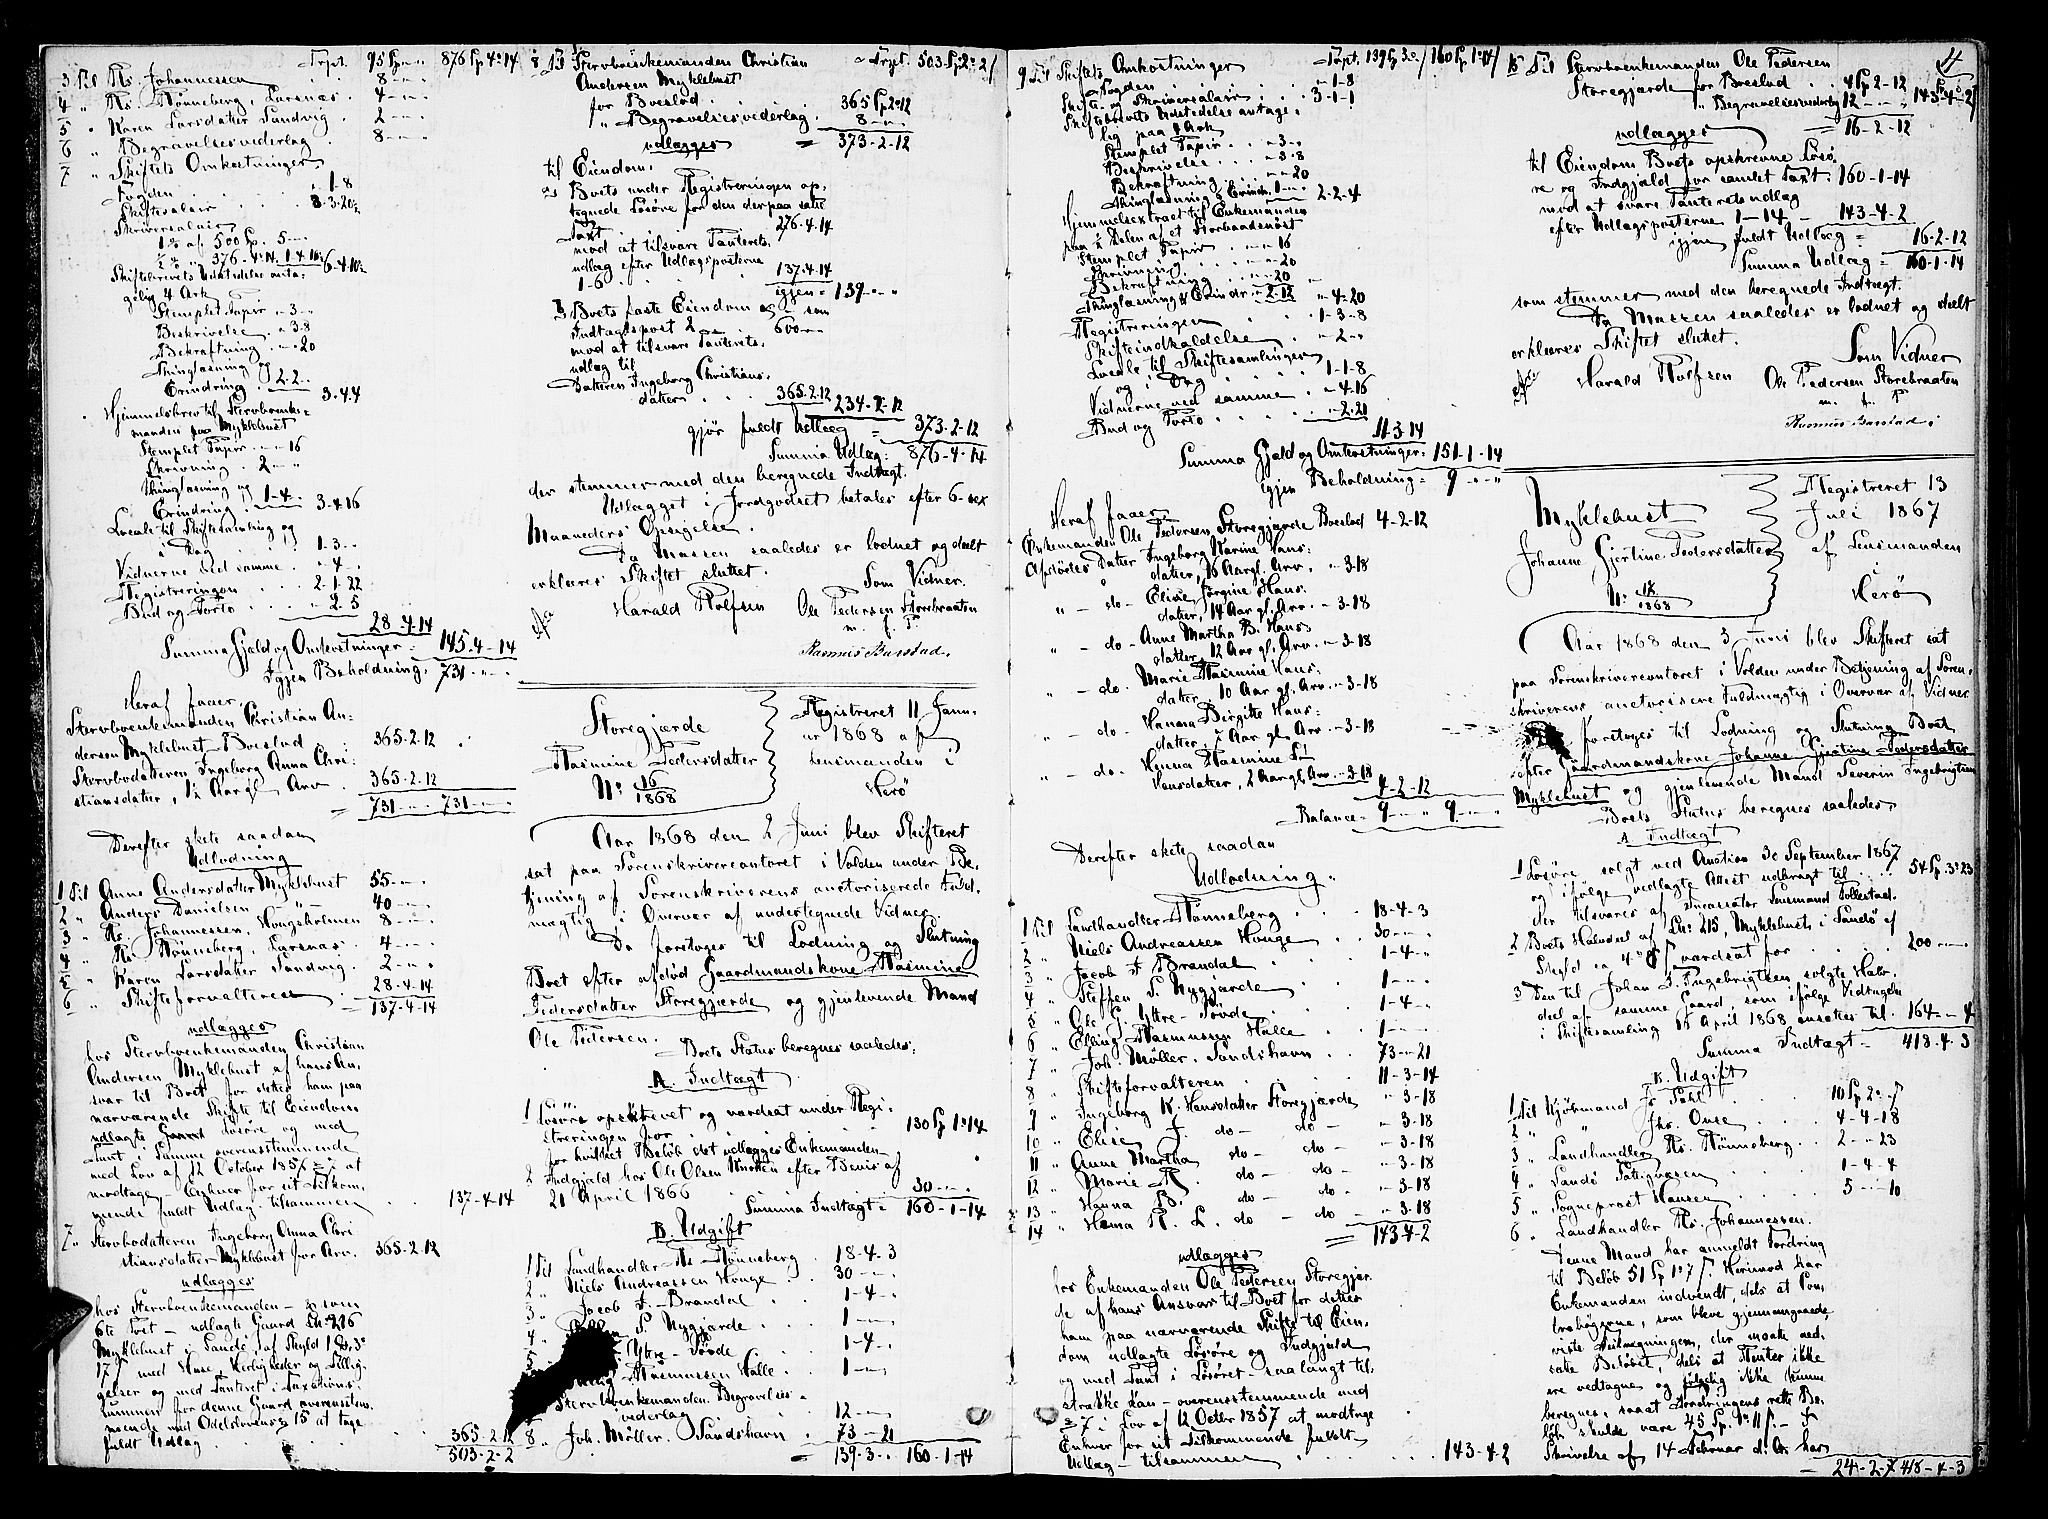 Trpt. 95 Sp. - " 876 Sp 4-14
3 Til Rs. Johannessen . . 8 - " - "
4 " Rs. Rønneberg, Larsnæs . 4 - " - "
5 " Karen Larsdatter Sundvig . 2 - " - "
6 " Begravelsesvederlag . 8 - " - "
7 " Skiftets Omkostninger
Fogden . . . . " 1-8
Skiftesalair . . . . 8-3-20½
Skriversalair
1 % af 500 Sp. 5 - " - "
½ % " 376-4-14. 1-4-10½ 6-4-10½
Skiftebrevets Udstedelse anta-
gelig 4 Ark
Stemplet Papir " - 3 - "
Beskrivelse . " 3-8
Bekræftning . " - " 20
Thinglæsning og
Erindring . 2-2 . . 3-4-4
Hjemmelsbrev til Stervboenke-
manden paa Myklebust
Stemplet Papir " - " - 16
Skrivning . 2 - " - "
Thinglæsning og
Erindring . 1-4 - " 3-4-16
Locale til Skiftesamling og
i Dag . . . . 1-3 - "
Vidnerne ved samme . " - 4 - "
Registreringen . . . 2-1-22
Bud og Porto . . . " 2-5
28-4-14
Summa Gjæld og Omkostninger = 145-4-14
Igjen Beholdning . 731 - " - "
Heraf faaer.
Stervboenkemanden Christian An-
dersen Myklebust Boeslod . 365-2-12
Stervbodatteren Ingeborg Anna Chri-
stiansdatter, 1½ Aar gl. Arv . 365-2-12
= 731 - " - " 731 - " - "
Derefter skete saadan
Udlodning
1 Til Anne Andersdatter Myklebust 55 - " - "
2 " Anders Danielsen - " - 40 - " - "
3 " Rs. Johannessen, Hougsholmen 8 - " - "
4 " Rs Rønneberg, Larsnæs . 4 - " - "
5 " Karen Larsdatter Sandvig . 2 - " - "
6 " Skifteforvalteren . 28-4-14
= 137-4-14
udlægges
hos Stervboenkemanden Christian
Andersen Myklebust af hans An-
svar til Boet for dette ham paa
nærværende Skifte til Eiendom
udlagte Løsøre og med
Pant i samme overensstemmende
med Lov af 12 October 1857 § 7 at
modtage Enhver for sit Tilkom-
mende fuldt Udlæg tilsammen . . 137-4-14
7 " Stervbodatteren Ingeborg Anna Chri
stiansdatter Myklebust for Arv . 365-2-12
udlægges
hos Stervboenkemanden - som
6te Post - udlagte Gaard Ln: 216
Myklebust i Sandø af Skyld
17 med Huse, Herligheder og Tillig-
gelser og med Panteret i Taxations-
summen for denne Gaard overensstem-
mende med Odelslovens § 15 at tage
fuldt Udlæg . . . . 365-2-12
503-2-2
8 Til Stervboenkemanden Christian - Trpt. 503 Sp 2-2
Andersen Myklebust
for Boeslod . . . 365 Sp 2-12
" Begravelsesvederlag . 8 - " - "
= 373-2-12
udlægges
til Eiendom.
a Boets under Registreringen op-
tegnede Løsøre for den derpaa satte
Taxt . . . . 276-4-14
mod at tilsvare Panterets-
udlæg efter Udlagsposterne
1-6 . . . . 137-4-14
igjen - 139 - " - "
b Boets faste Eiendom - som
Indtægtspost 2 . . 600 - " - "
mod at tilsvare Panterets-
udlæg til
Datteren Ingeborg Christians-
datter . . . 365-2-12
234-2-12
gjør fuldt Udlæg = 373-2-12
Summa Udlæg : 876-4-14
der stemmer med den beregnede Indtægt.
Udlægget i Jordgodset betales efter 6 - sex
Maaneders Opsigelse.
Da Massen saaledes er lodnet og deelt
erklæres Skiftet sluttet.
Som Vidner.
Harald Rolfsen Ole Pedersen Storebraaten
m. f. P
Rasmus Barstad.
Storegjærde
Rasmine Pedersdatter
No 16/1868
Registreret 11 Janu-
ar 1868 af
Lensmanden i
Herø
Aar 1868 den 2 Juni blev Skifteret
sat paa Sorenskrivercontoret i Volden under Be-
tjening af Sorenskriverens auctoriserede Fuld-
mægtig i Overvær af undertegnede Vidner.
Da foretoges til Lodning og Slutning
Boet efter afdød Gaardmandskone Rasmine
Pedersdatter Storegjærde og gjenlevende Mand
Ole Pedersen.
Boets Status beregnes saaledes:
A. Indtægt
1 Løsøre opskrevet og vurdsat under Regi-
streringen for . . . 130 Sp 1-14
for hvilket Beløb det udlægges Enkemanden -
2 Indgjæld hos Ole Olsen Notten efter Beviis af
21 April 1866 . . . 30 - " - "
Summa Indtægt = 160-1-14
B. Udgift
1 Til Landhandler Rs Rønneberg . 18-4-3
2 " Niels Andreassen Houge . 30 - " - "
3 " Jacob J. Brandal . . " 1-4 - "
4 S. Nygjærde . . 1 - " - "
5 Yttre-Tøvde . . " 1-4 - "
Rasmussen Halle . 1 - " - "
Stervboenkemanden. Begravelses-
vederlag . . . 12 - " - "
8 " Joh. Møller. Sandshavn . 73 - " 21
= 139-3 - " 160-1-14
9 Til Skiftets Omkostninger - Trpt. 139 Sp 3 - " 160 Sp 1-14
Fogden . . . . " 1-8
Skifte- og Skriversalair . . . 3-1-1
Skiftebrevets Udstedelse antage-
lig paa 3 Ark
Stemplet Papir . . " 3 - "
Beskrivelse . . . " 3-8
Bekræftning . . . " - " 20
Thinglæsning & Erindr. 1 - " - " 2-2-4
Hjemmelsextract til Enkemanden
paa ½ Delen af et Storbaadsnøst
Stemplet Papir . . " - " 16
Skrivning . . . " - " 20
Bekræftning . . . " - " 20
Thinglæsning & Erindr . " 2-12 " 4-20
Registreringen . . . 1-3-8
Skifteindkaldelse . . . " 2 - "
Locale til Skiftesamlinger
og i Dag . . . . 1-1-8
Vidnerne ved samme . . " 4-16
Bud og Porto . . . . " 2-21
11-3-14
Summa Gjæld og Omkostninger = 151-1-14
Igjen Beholdning = 9 - " - "
Heraf faaer.
Enkemanden Ole Pedersen Storegjærde Boeslod 4-2-12
Afdødes Datter Ingeborg Karine Hans-
datter, 16 Aar gl. Arv. " 3-18
" - do - Elise Jørgine Hans-
datter, 14 Aar gl. Arv. " 3-18
" - do - Anne Martha B. Hans-
datter, 12 Aar gl. Arv. " 3-18
" - do - Marie Rasmine Hans-
datter 10 Aar gl. Arv. " 3-18
" - do - Hanna Birgitte Hans-
datter, 7 Aar gl. Arv - " 3-18
" - do - Hanna Rasmine L.
Hansdatter, 2 Aar gl. Arv. " 3-18
4-2-12
Balance = 9 - " - " 9 - " - "
Derefter skete saadan
Udlodning.
1 Til Landhandler Rønneberg . . . 18-4-3
2 " Niels Andreassen Houge . . 30 - " - "
3 " Jacob J Brandal . . . " 1-4 - "
4 " Steffen S. Nygjærde . . . 1 - " - "
5 " Ole G. Yttre-Tøvde . . . " 1-4 - "
6 " Elling Rasmussen Halle . . 1 - " - "
7 " Joh. Møller. Sandshavn . . 73 - " 21
8 " Skifteforvalteren . . . 11-3-14
9 " Ingeborg K. Hansdatter Storegjærde " 3-18
10 " Elise J. do - do - " 3-18
11 " Anne Martha do - do - " 3-18
12 " Marie R. do - do - " 3-18
13 " Hanna B. do - do - " 3-18
14 " Hanna R. L. do - do - " 3-18
= 143-4-2
udlægges
hos Enkemanden Ole Pedersen Storegjær-
de af hans Ansvar til Boet for dette
ham paa nærværende Skifte til Eien-
dom udlagte Løsøre og Indgjæld
og med Pant i Løsøret - saalangt til-
strække kan - overensstemmende med
§ 7 i Lov af 12 Octbr 1857 at modtage
Enhver for sit Tilkommende fuldt
Udlæg - tilsammen . . . . 143-4-2
4
15 Til Stervboenkemanden Ole Pedersen
Storegjærde for Boeslod . . 4 Sp 2-12 143-4-2
" Begravelsesvederlag 12 - " - "
= 16-2-12
udlægges
til Eiendom Boets opskrevne Løsø-
re og Indgjæld for samlet Taxt . 160-1-14
mod at svare Panteretsudlæg
efter Udlagsposterne 1-14 - 143-4-2
igjen fuldt Udlæg = 16-2-12
Summa Udlæg = 160-1-14
som stemmer med den beregnede Indtægt.
Da Massen saaledes er lodnet og deelt
erklæres Skiftet sluttet.
Som Vidner
Harald Rolfsen Ole Pedersen Storebraaten
m. f. P
Rasmus Barstad
Myklebust
Johanne Gjertine Pedersdatter
No 17/1868
Registreret 13
Juli 1867
af Lensmanden
Herø
Aar 1868 den 3 Juni blev Skifteret sat
paa Sorenskrivercontoret i Volden under Betjening af Soren-
skriverens auctoriserede Fuldmægtig i Overvær af Vidner
foretoges til Lodning og Slutning Boet
efter Gaardmandskone Johanne Gjertine Pedersdatter
Myklebust og gjenlevende Mand Severin Ingebrigtsen
Boets Status beregnes saaledes:
A. Indtægt
1 Løsøre solgt ved Auction 30 September 1867
og ifølge vedlagte Attest udbragt til . . 54 Sp. 3-23
der tilsvares af Incassator Lensmand Tollestad.
2 Boets Halvdel af Ln: 215, Myklebust, i Sandø af
Skyld vurdsat for . . . . 200 - " - "
3 Den til Johan S. Ingebrigtsen solgte Halv-
deel af samme Gaard, som ifølge Vedtagelse
i Skiftesamling 15 April 1868 ansættes til . 164 - " 4
Summa Indtægt = 418-4-3
B. Udgift
1 Til Kjøbmand Jz Dahl . . . 10 Sp 2 - "
2 " " Jhs. Owre . . 4-4-18
3 " Landhandler Rs. Rønneberg . . 2 - " 23
4 " Sandø Fattigvæsen . . . 1-4-4
5 " Sogneprest Hansen . . . 5 - " 10
6 " Landhandler Rs. Johannessen.
Denne Mand har anmeldt Fordring
til Beløb 51 Sp 1-7. Herimod har
Enkemanden indvendt, dels at Con-
trabøgerne, som bleve gjennemgaaede,
viste Feilregninger, der maatte ned-
sætte Beløbet, dels at Renter ikke
ere vedtagne og følgelig ikke kunne
beregnes, saaat Fordringens rette Be-
løb skulde være 45 Sp. 1-11. - I
Skrivelse af 14 Februar d. A. har
= 24-2-7 418-4-3